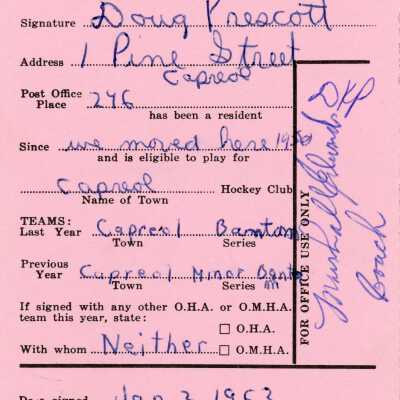 Signature Doug Prescott
Address 1 Pine Street
Capreol
Post Office
Place 246
has been a resident
Since we moved here 1950
and is eligible to play for
Capreol Hockey Club
Name of Town
TEAMS:
Last Year Capreol Bantam
Town Series
Previous
Year Capreol Minor Banta
m
Town Series
If signed with any other O.H.A. or O.M.H.A.
team this year, state:
☐ O.H.A.
With whom Neither ☐ O.M.H.A.
Date signed Jan 2 1953
FOR OFFICE USE ONLY
Coach